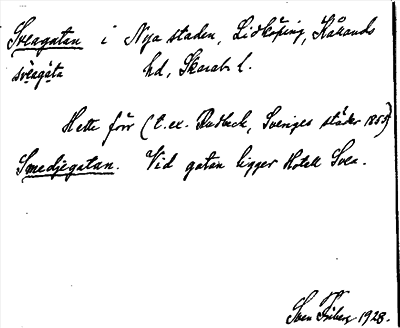 Sveagatan i Nya staden, Lidköping, Kålands
svèagáta hd, Skarab. l.
Hette förr (t.ex. Rudbeck, Sveriges städer 1855)
Smedjegatan. Vid gatan ligger Hotell Svea.
Sven Friberg 1928.